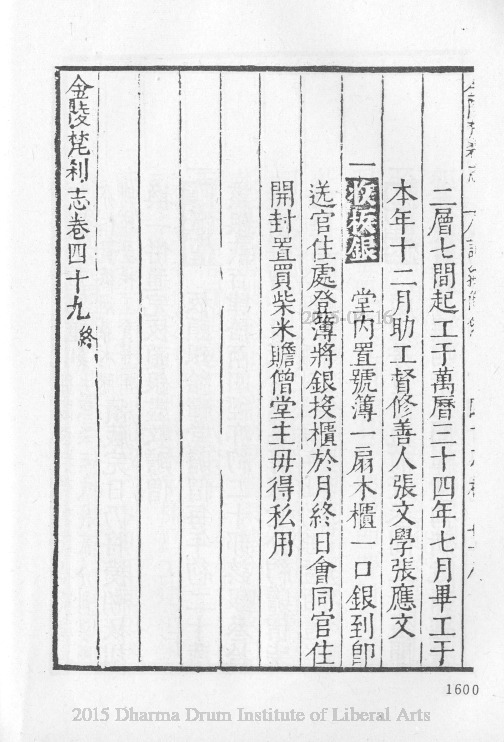 二層七間起工于萬曆三十四年七月畢工于
本年十二月助工督修善人張文學張應文
一 板銀 堂内置號簿一扇木櫃一口銀到卽
送官住處登簿將銀投櫃於月終日會同官住
開封置買柴米贍僧堂主毋得私用
金陵梵刹志卷四十九終
1600
2015 Dharma Drum Institute of Liberal Arts